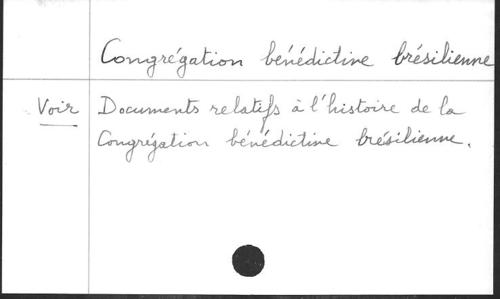 Congrégation bénédictine brésilienne
Voir Documents relatifs à l'histoire de la
Congrégation bénédictine brésilienne.